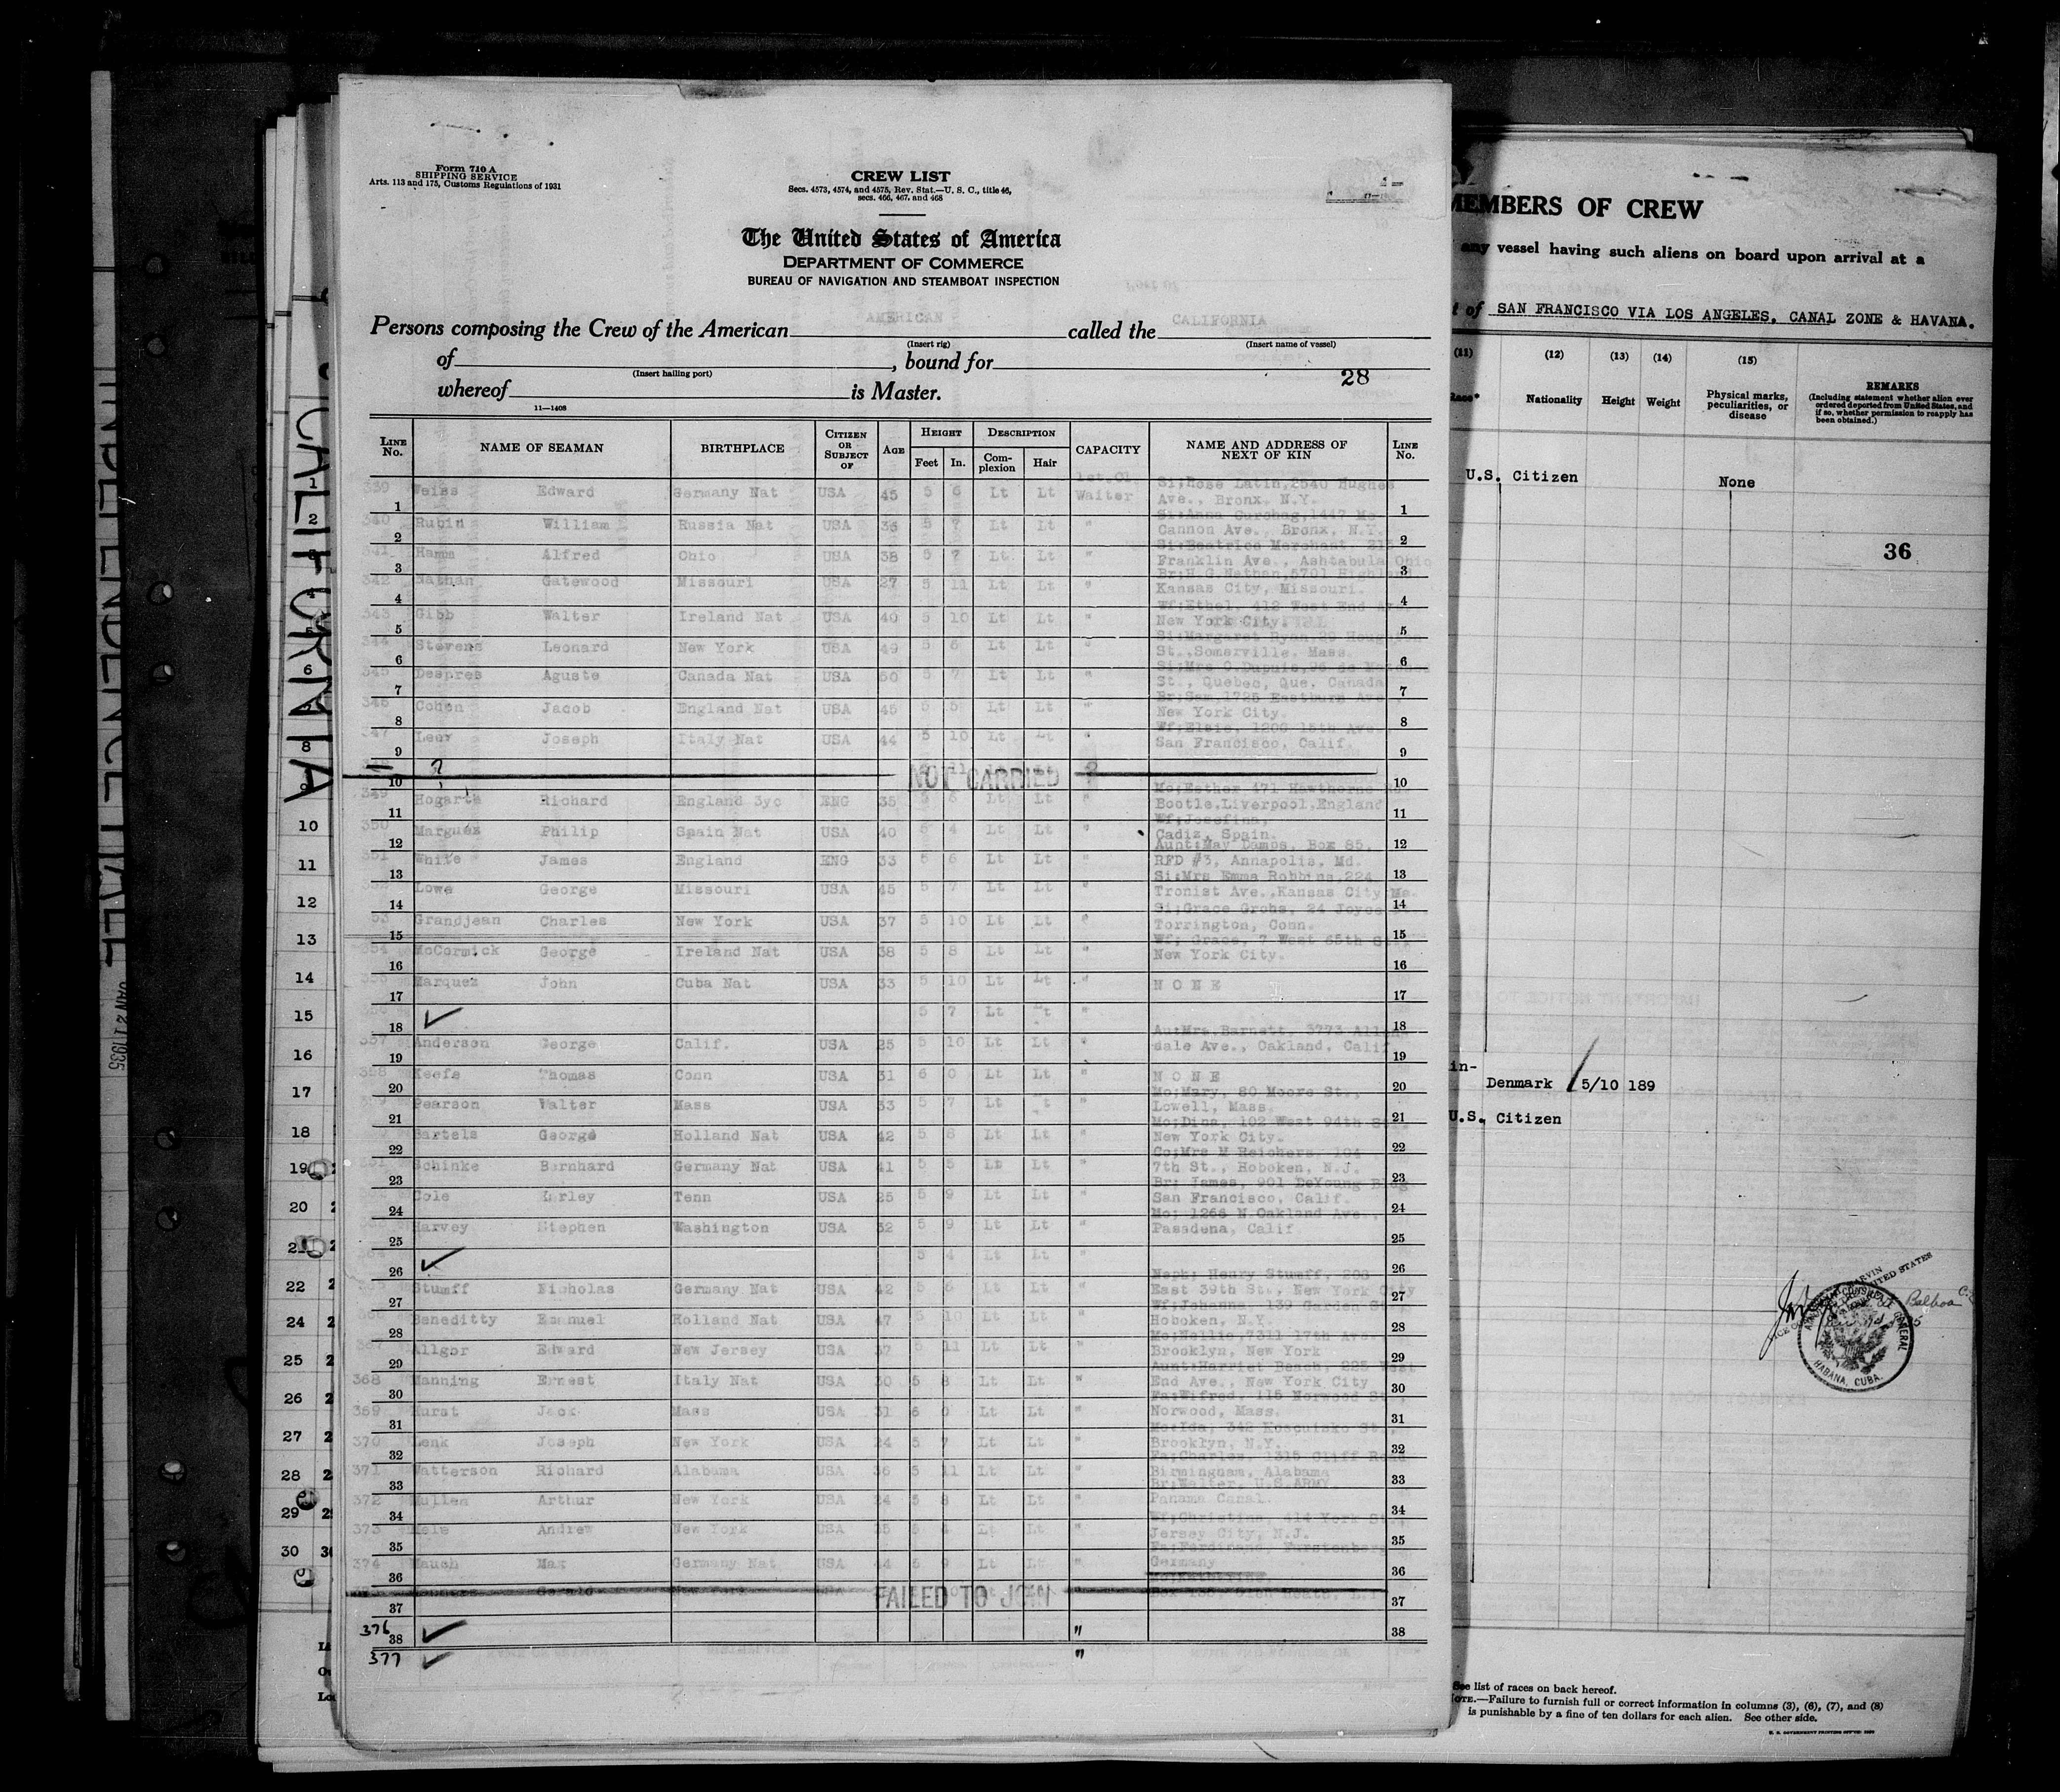 Form 710 A
SHIPPING SERVICE
Arts. 113 and 175, Customs Regulations of 1931
CREW LIST
Secs. 4573, 4574, and 4575, Rev. Stat.—U. S. C., title 46,
secs. 466, 467, and 468
The United States of America
DEPARTMENT OF COMMERCE
BUREAU OF NAVIGATION AND STEAMBOAT INSPECTION
Persons composing the Crew of the American AMERICAN called the CALIFORNIA
(Insert rig) (Insert name of vessel)
of , bound for
(Insert hailing port)
28
whereof is Master.
11—1408
LINE No. NAME OF SEAMAN BIRTHPLACE CITIZEN OR SUBJECT OF AGE HEIGHT Feet In. DESCRIPTION Complexion Hair CAPACITY NAME AND ADDRESS OF NEXT OF KIN LINE No.
339 1 Weiss Edward Germany Nat USA 45 5 6 Lt Lt Waiter Si;Rose Latin,2540 Hughes Ave., Bronx. N.Y. 1
340 2 Rubin William Russia Nat USA 5 7 Lt Lt " Cannon Ave., Bronx, N.Y. 2
341 3 Hamm Alfred Ohio USA 38 5 7 Lt Lt " Si;Beatrice Merchant, Franklin Ave., Ashtabula Ohio 3
342 4 Nathan Gatewood Missouri USA 27 5 11 Lt Lt " Br;H G Nathan,5701 Highland Kansas City, Missouri. 4
343 5 Gibb Walter Ireland Nat USA 40 5 10 Lt Lt " Wf;Ethel, 412 West End New York City. 5
344 6 Stevens Leonard New York USA 49 5 Lt Lt " Si;Margaret Ryan,29 St.,Somerville, Mass. 6
345 7 Despres Aguste Canada Nat USA 50 5 7 Lt Lt " Si;Mrs O Dupuis, St., Quebec, Que, Canada 7
346 8 Cohen Jacob England Nat USA 45 5 5 Lt Lt " Br;Sam 1725 Eastburn Ave New York City. 8
347 9 Leer Joseph Italy Nat USA 44 5 10 Lt Lt " Wf;Elsie, 1206 15th Ave. San Francisco, Calif. 9
10 ? NOT CARRIED 10
349 11 Hogarth Richard England 3yc ENG 35 6 Lt Lt " Mo;Esther 471 Hawthorne Bootle,Liverpool,England 11
350 12 Marques Philip Spain Nat USA 40 5 4 Lt Lt " Wf;Josefina, Cadiz, Spain. 12
351 13 White James England ENG 33 5 6 Lt Lt " Aunt:May Damps, Box 85, RFD #3, Annapolis, Md. 13
352 14 Lowe George Missouri USA 45 5 7 Lt Lt " Si;Mrs Emma Robbins,224 Tronist Ave.,Kansas City Mo. 14
353 15 Grandjean Charles New York USA 37 5 10 Lt Lt " Si;Grace Grohs, 24 Joyce Torrington, Conn. 15
354 16 McCormick George Ireland Nat USA 38 5 8 Lt Lt " Wf; Grace, 7 West 65th New York City. 16
355 17 Marquez John Cuba Nat USA 33 5 10 Lt Lt " N O N E 17
356 18 5 7 Lt Lt " 18
357 19 Anderson George Calif. USA 25 5 10 Lt Lt " Au:Mrs.Barnett, 3773 Allendale Ave., Oakland, Calif 19
358 20 Keefe Thomas Conn USA 31 6 0 Lt Lt " N O N E 20
21 Pearson Walter Mass USA 33 5 7 Lt Lt " Mo;Mary, 80 Moore St., Lowell, Mass 21
22 Bartels George Holland Nat USA 42 5 8 Lt Lt " Mo;Dina, 102 West 94th New York City. 22
23 Schinke Bernhard Germany Nat USA 41 5 5 Lt Lt " Co;Mrs M Reichers, 104 7th St., Hoboken, N.J. 23
24 Cole Tenn USA 25 5 9 Lt Lt " Br; James, 901 DeYoung Bldg San Francisco, Calif. 24
25 Harvey Stephen Washington USA 32 5 9 Lt Lt " Mo; 1268 N Oakland Ave., Pasadena, Calif 25
26 5 4 Lt Lt " 26
27 Stumff Nicholas Germany Nat USA 42 5 6 Lt Lt " Neph; Henry Stumff, 208 East 39th St., New York City 27
28 Beneditty Emanuel Holland Nat USA 47 5 10 Lt Lt " Wf;Johanna, 139 Garden St., Hoboken, N.Y. 28
367 29 Allgor Edward New Jersey USA 37 5 11 Lt Lt " Mo;Nellie,7311 17th Ave. Brooklyn, New York 29
368 30 Manning Ernest Italy Nat USA 30 5 8 Lt Lt " Aunt:Harriet Beach, 225 West End Ave., New York City 30
369 31 Hurst Jack Mass USA 31 6 0 Lt Lt " Fa;Wilfred, 115 Norwood St., Norwood, Mass. 31
370 32 Lenk Joseph New York USA 24 5 7 Lt Lt " Mo;Ida, 342 Kosciusko St., Brooklyn, N.Y. 32
371 33 Watterson Richard Alabama USA 36 5 11 Lt Lt " Fa;Charles, 1315 Cliff Road Birmingham, Alabama 33
372 34 Mullen Arthur New York USA 24 5 8 Lt Lt " Br;Walter, U.S.ARMY, Panama Canal. 34
373 35 Andrew New York USA 25 5 Lt Lt " Wf;Christina, 414 York St., Jersey City, N.J. 35
374 36 Mauch Max Germany Nat USA 44 5 9 Lt Lt " Fa;Ferdinand, Furstenberg Germany 36
37 Gerald New York FAILED TO JOIN 37
376 38 " 38
377 "
CALIFORNIA
INDEPENDENCE HALL JAN 21 1935
1
2
3
4
5
6
7
8
9
10
11
12
13
14
15
16
17
18
19
20
21
22
24
25
26
27
28
29
30
MEMBERS OF CREW
any vessel having such aliens on board upon arrival at a
of SAN FRANCISCO VIA LOS ANGELES, CANAL ZONE & HAVANA.
(11) (12) (13) (14) (15)
Race* Nationality Height Weight Physical marks, peculiarities, or disease REMARKS
(Including statement whether alien ever ordered deported from United States, and if so, whether permission to reapply has been obtained.)
U.S. Citizen None
36
in-
Denmark 5/10 189
U.S. Citizen
Balboa
AMERICAN CONSULATE GENERAL
HABANA, CUBA.
See list of races on back hereof.
NOTE.—Failure to furnish full or correct information in columns (3), (6), (7), and (8)
is punishable by a fine of ten dollars for each alien. See other side.